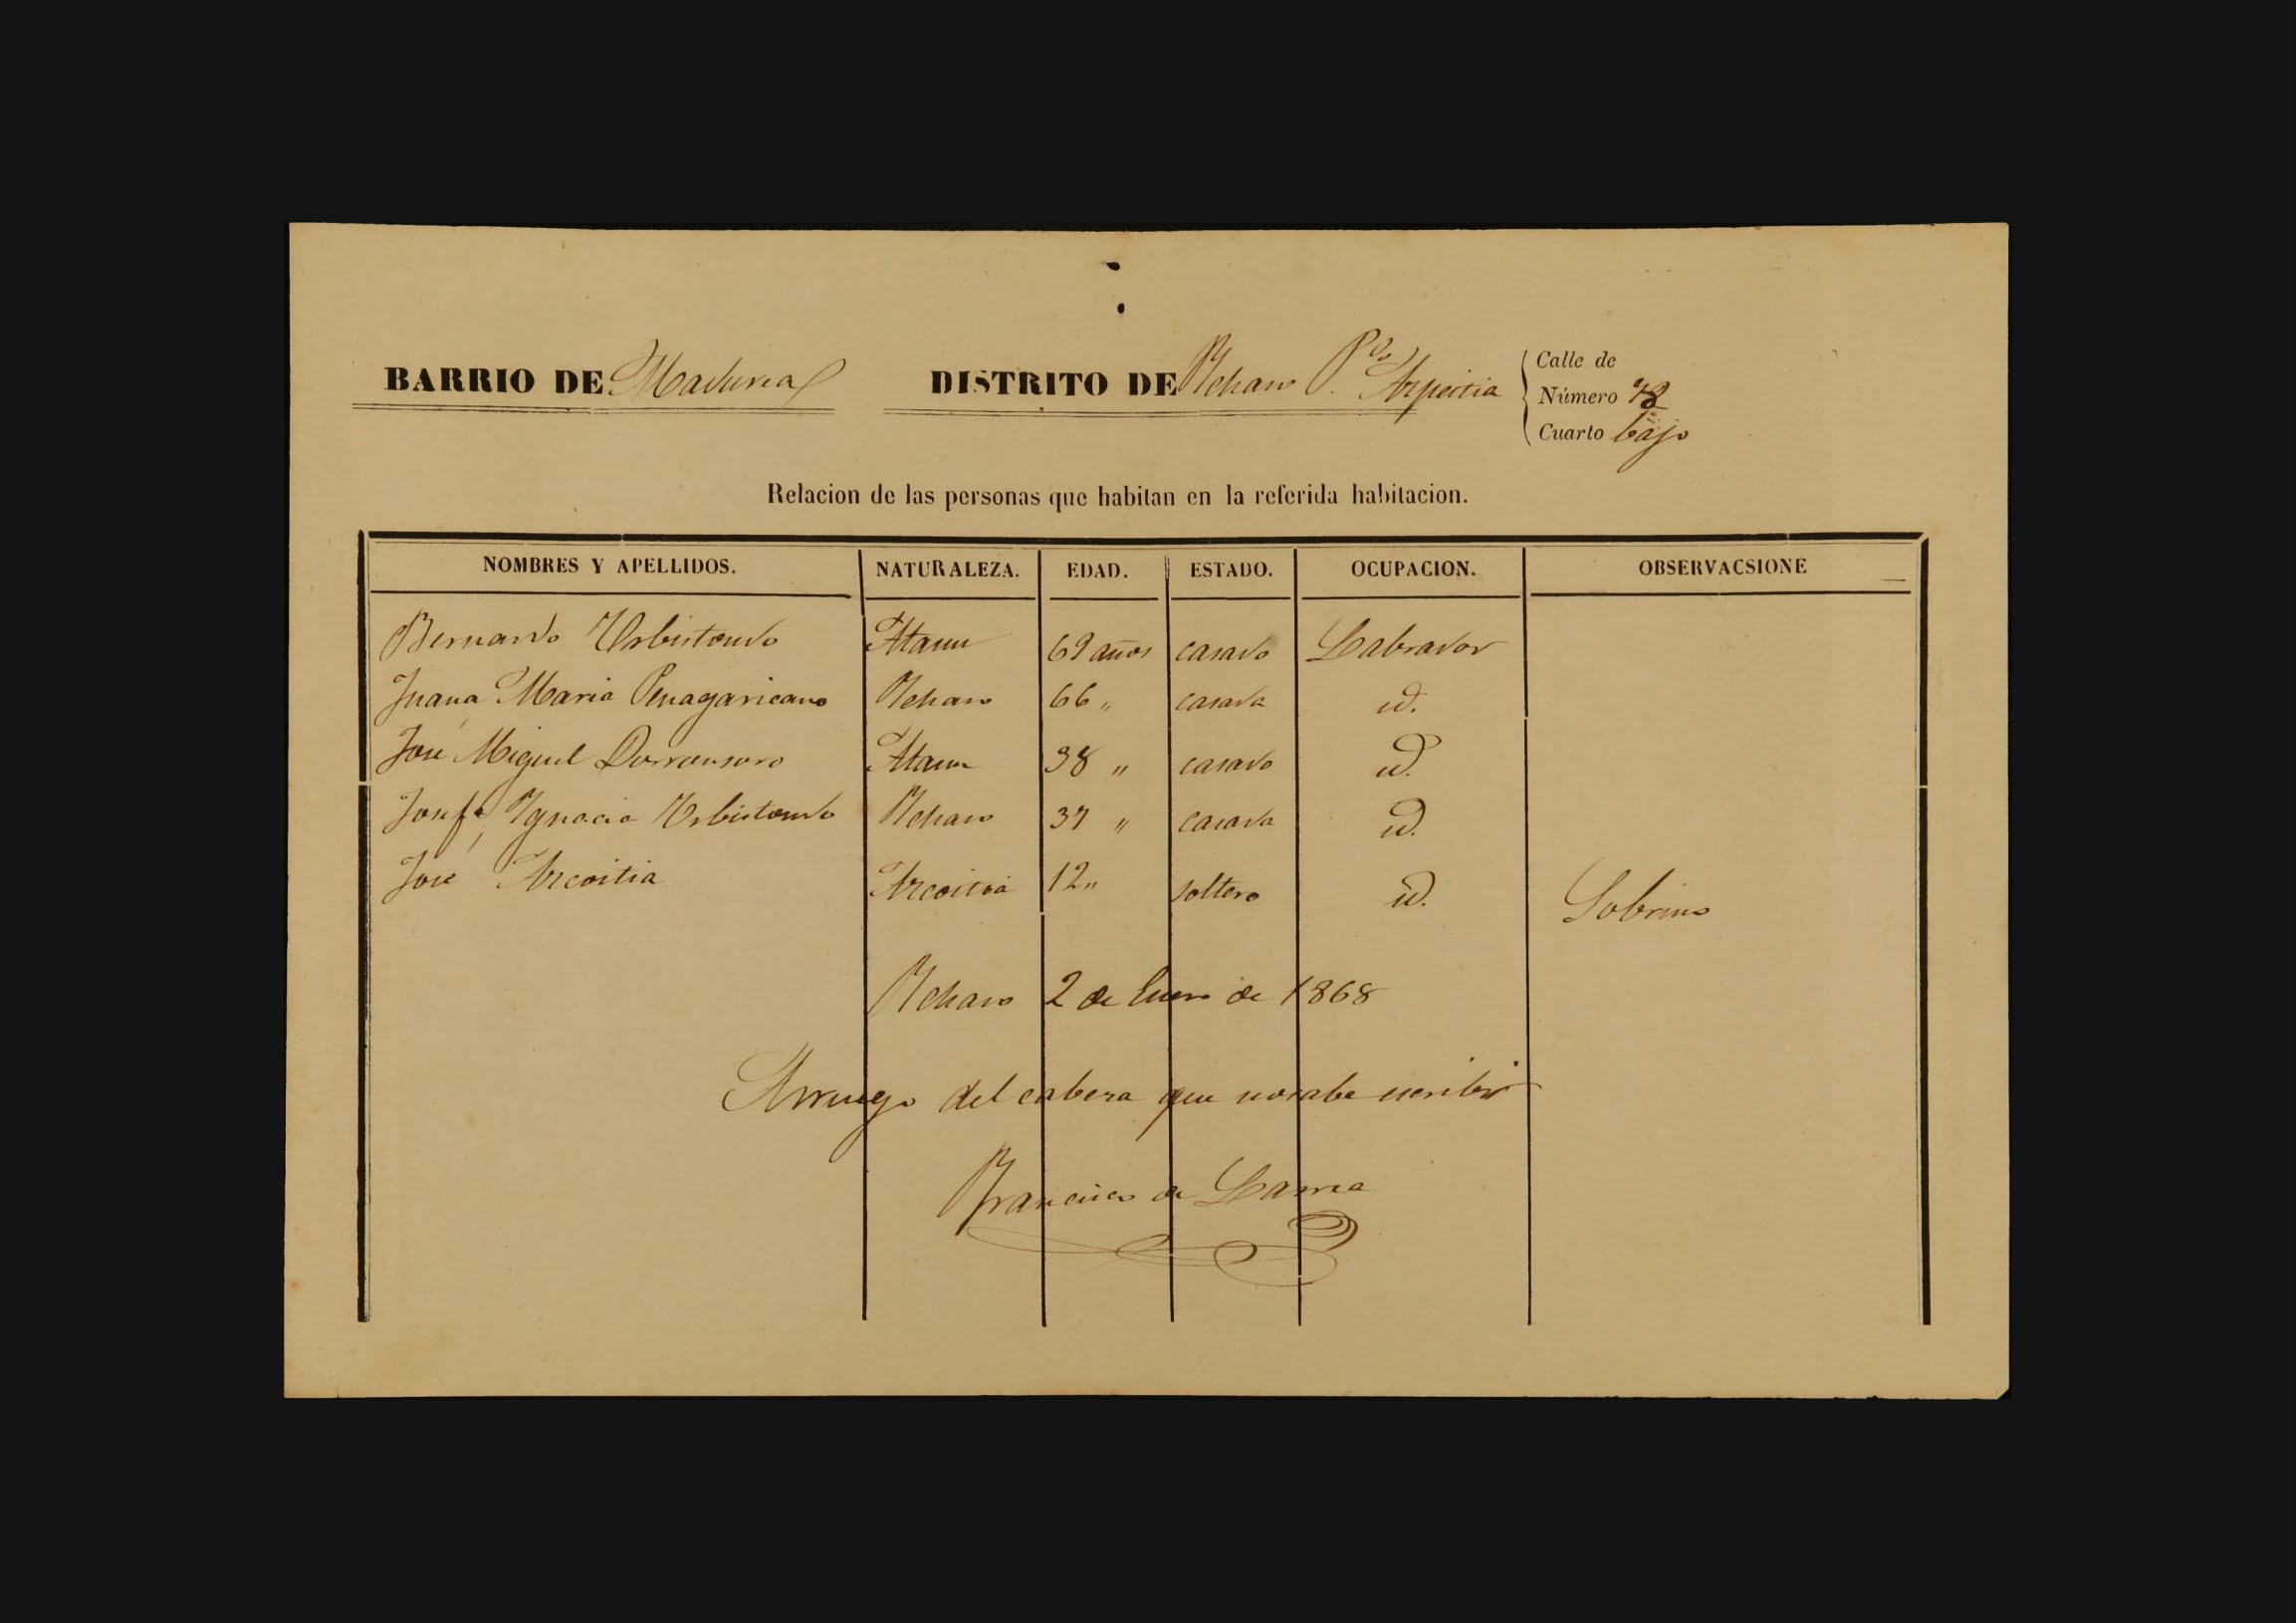 BARRIO DE DISTRITO DE Ychaso P.do Azpeitia
Calle de
Número
Cuarto bajo
Relacion de las personas que habitan en la referida habitacion.
NOMBRES Y APELLIDOS. NATURALEZA. EDAD. ESTADO. OCUPACION. OBSERVACSIONE
Bernardo Urbistondo Ataun 69 años casado Labrador
Juana Maria Penagaricano Ychaso 66 " casada id.
José Miguel Dorronsoro Ataun 38 " casado id.
Josefa Ygnacia Urbistondo Ychaso 37 " casada id.
José Azcoitia Azcoitia 12 " soltero id. Sobrino
Ychaso 2 de Enero de 1868
Arruego del cabeza que no sabe escribir
Francisco de Larrea